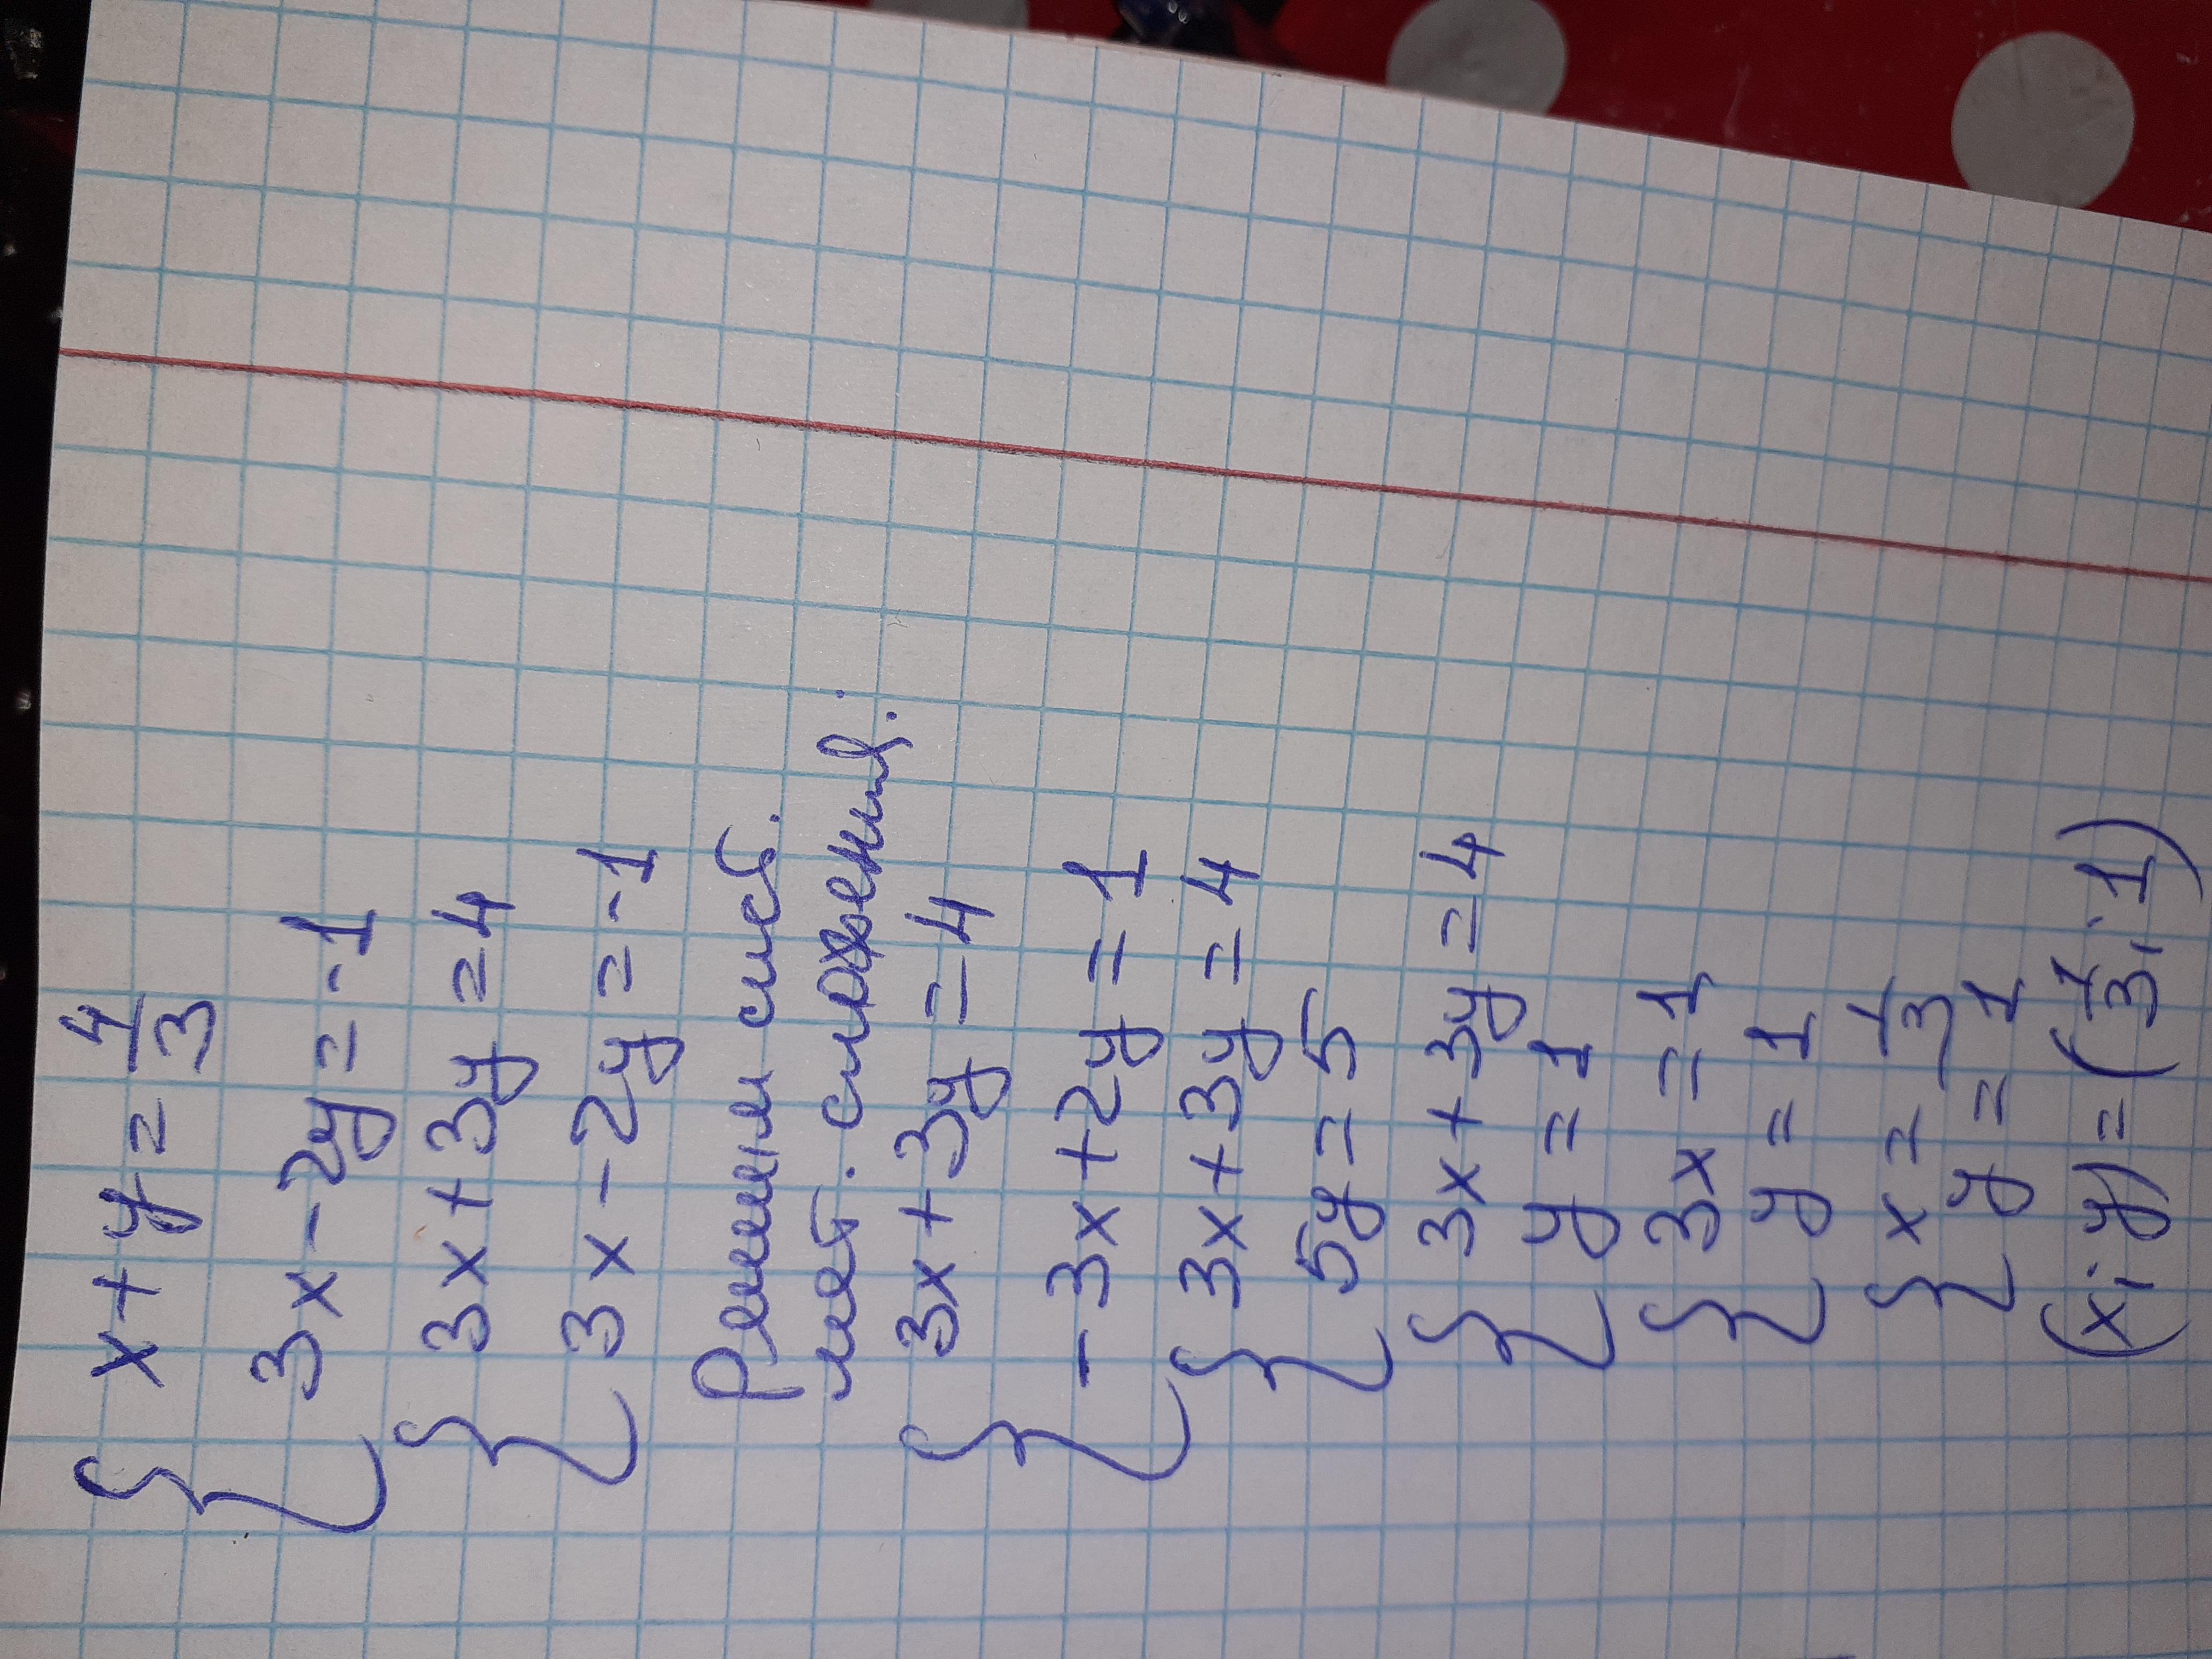 { x + y = 4/3
3x - 2y = -1
{ 3x + 3y = 4
3x - 2y = -1
Решим сист.
мет. сложения:
{ 3x + 3y = 4
-3x + 2y = 1
{ 3x + 3y = 4
5y = 5
{ 3x + 3y = 4
y = 1
{ 3x = 1
y = 1
{ x = 1/3
y = 1
(x; y) = (1/3; 1)